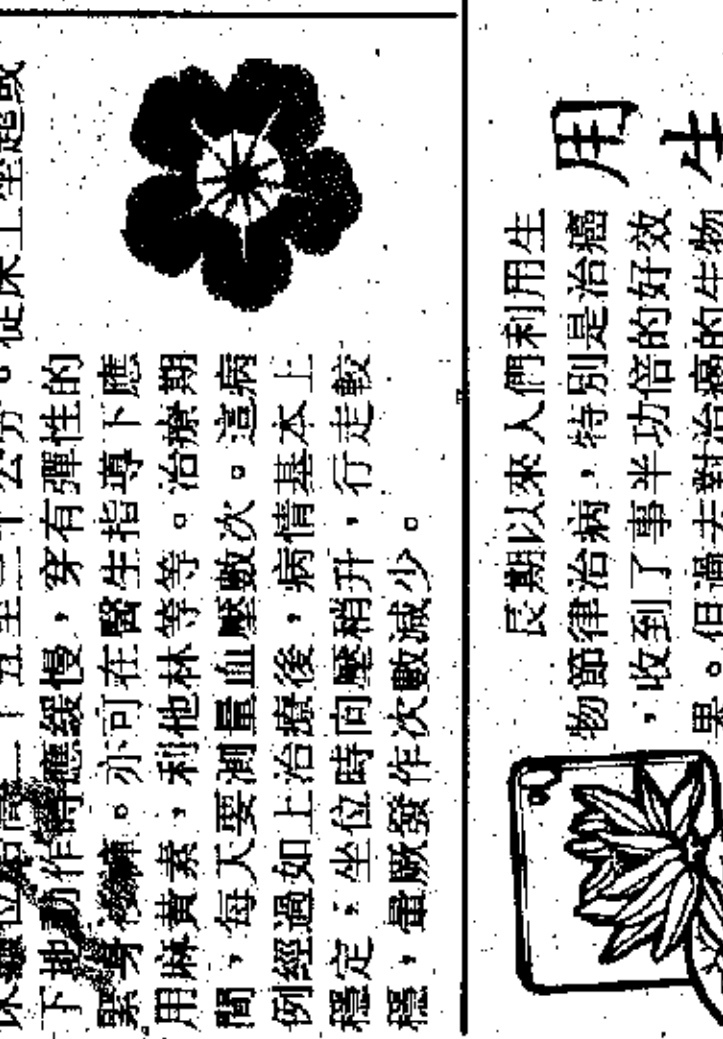 公分。從床上坐起或
下地動作時應緩慢，穿有彈性的
緊身襪褲。亦可在醫生指導下應
用麻黃素，利他林等等。治療期
間，每天要測量血壓數次。這病
例經過如上治療後，病情基本上
穩定；坐位時向壓稍升，行走較
穩，暈厥發作次數減少。
用
生
長期以來人們利用生
物節律治病，特別是治癌
，收到了事半功倍的好效
果。但過去對治癌的生物